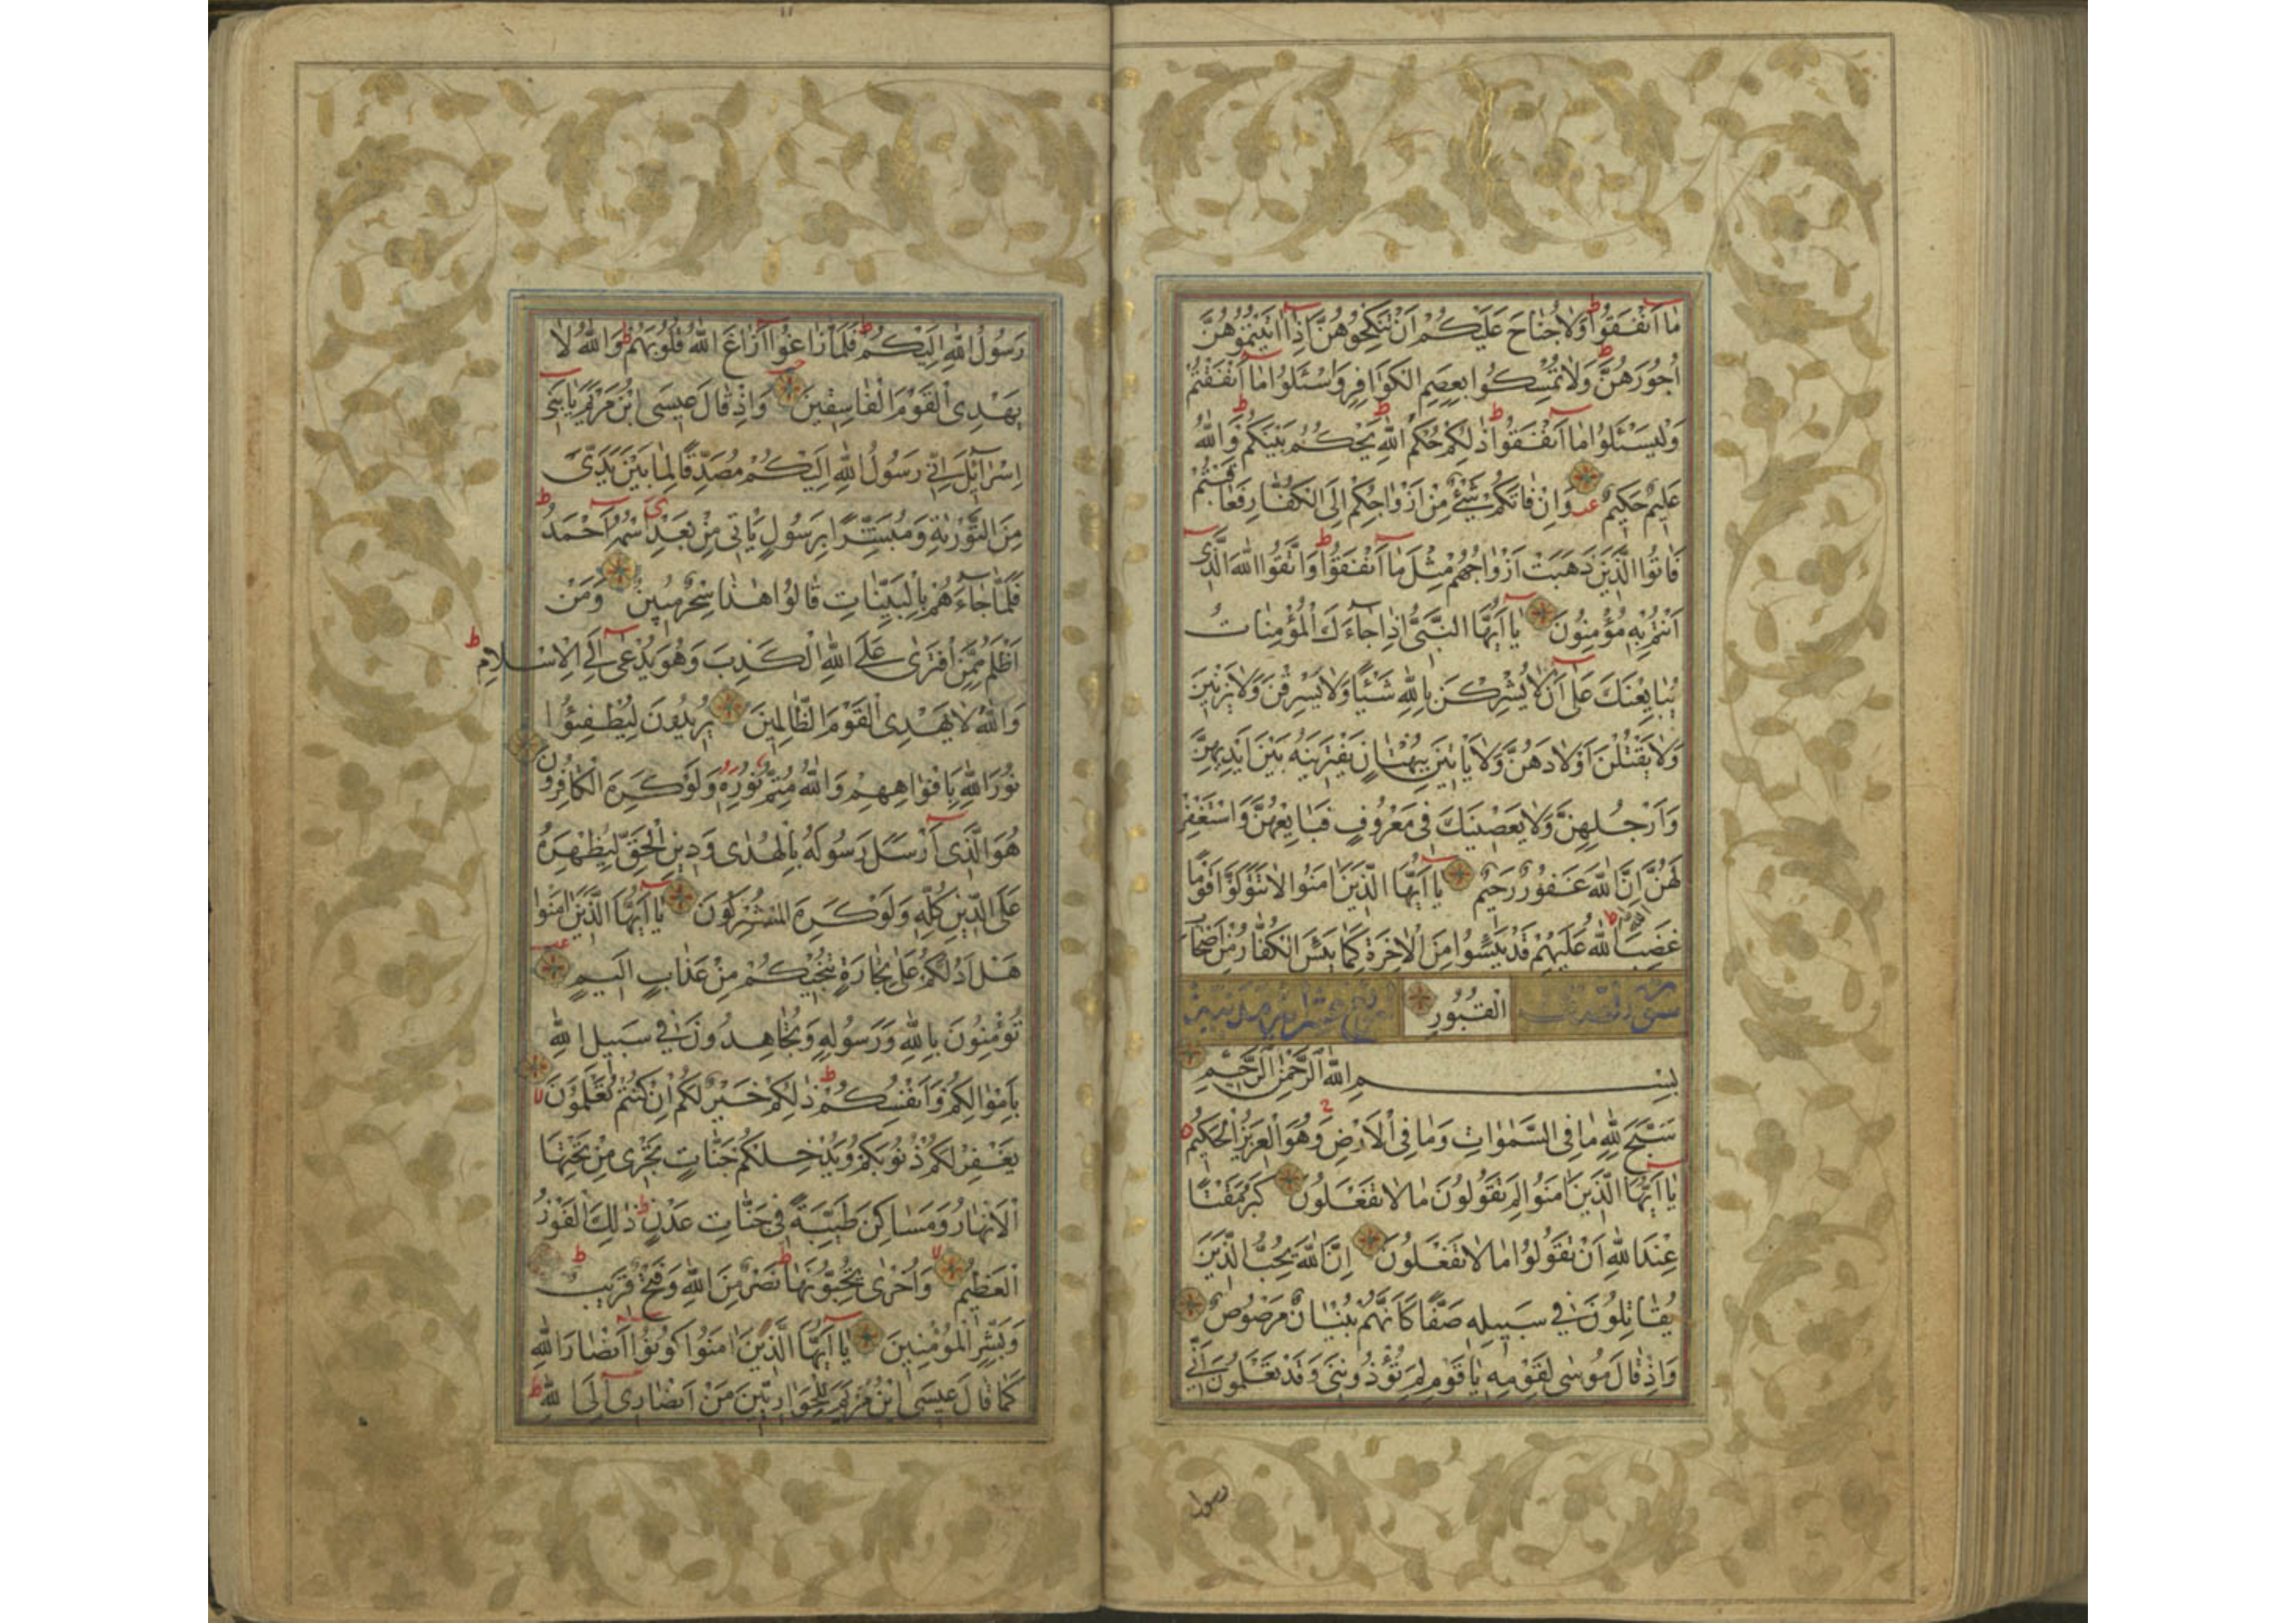 مَا اَنْفَقُوا وَلَا جُنَاحَ عَلَيْكُمْ اَنْ تَنْكِحُوهُنَّ اِذَا اٰتَيْتُمُوهُنَّ
اُجُورَهُنَّ وَلَا تُمْسِكُوا بِعِصَمِ الْكَوَافِرِ وَاسْئَلُوا مَا اَنْفَقْتُمْ
وَلْيَسْئَلُوا مَا اَنْفَقُوا ذٰلِكُمْ حُكْمُ اللّٰهِ يَحْكُمُ بَيْنَكُمْ وَاللّٰهُ
عَلِيمٌ حَكِيمٌ وَاِنْ فَاتَكُمْ شَيْءٌ مِنْ اَزْوَاجِكُمْ اِلَى الْكُفَّارِ فَعَاقَبْتُمْ
فَاٰتُوا الَّذِينَ ذَهَبَتْ اَزْوَاجُهُمْ مِثْلَ مَا اَنْفَقُوا وَاتَّقُوا اللّٰهَ الَّذِى
اَنْتُمْ بِهِ مُؤْمِنُونَ يَا اَيُّهَا النَّبِىُّ اِذَا جَاءَكَ الْمُؤْمِنَاتُ
يُبَايِعْنَكَ عَلٰى اَنْ لَا يُشْرِكْنَ بِاللّٰهِ شَيْئًا وَلَا يَسْرِقْنَ وَلَا يَزْنِينَ
وَلَا يَقْتُلْنَ اَوْلَادَهُنَّ وَلَا يَأْتِينَ بِبُهْتَانٍ يَفْتَرِينَهُ بَيْنَ اَيْدِيهِنَّ
وَاَرْجُلِهِنَّ وَلَا يَعْصِينَكَ فِى مَعْرُوفٍ فَبَايِعْهُنَّ وَاسْتَغْفِرْ
لَهُنَّ اللّٰهَ اِنَّ اللّٰهَ غَفُورٌ رَحِيمٌ يَا اَيُّهَا الَّذِينَ اٰمَنُوا لَا تَتَوَلَّوْا قَوْمًا
غَضِبَ اللّٰهُ عَلَيْهِمْ قَدْ يَئِسُوا مِنَ الْاٰخِرَةِ كَمَا يَئِسَ الْكُفَّارُ مِنْ اَصْحَابِ
الْقُبُورِ
بِسْمِ اللّٰهِ الرَّحْمٰنِ الرَّحِيمِ
سَبَّحَ لِلّٰهِ مَا فِى السَّمٰوَاتِ وَمَا فِى الْاَرْضِ وَهُوَ الْعَزِيزُ الْحَكِيمُ
يَا اَيُّهَا الَّذِينَ اٰمَنُوا لِمَ تَقُولُونَ مَا لَا تَفْعَلُونَ كَبُرَ مَقْتًا
عِنْدَ اللّٰهِ اَنْ تَقُولُوا مَا لَا تَفْعَلُونَ اِنَّ اللّٰهَ يُحِبُّ الَّذِينَ
يُقَاتِلُونَ فِى سَبِيلِهِ صَفًّا كَاَنَّهُمْ بُنْيَانٌ مَرْصُوصٌ
وَاِذْ قَالَ مُوسٰى لِقَوْمِهِ يَا قَوْمِ لِمَ تُؤْذُونَنِى وَقَدْ تَعْلَمُونَ اَنِّى
رسول
رَسُولُ اللّٰهِ اِلَيْكُمْ فَلَمَّا زَاغُوا اَزَاغَ اللّٰهُ قُلُوبَهُمْ وَاللّٰهُ لَا
يَهْدِى الْقَوْمَ الْفَاسِقِينَ وَاِذْ قَالَ عِيسَى ابْنُ مَرْيَمَ يَا بَنِى
اِسْرَائِلَ اِنِّى رَسُولُ اللّٰهِ اِلَيْكُمْ مُصَدِّقًا لِمَا بَيْنَ يَدَىَّ
مِنَ التَّوْرٰيةِ وَمُبَشِّرًا بِرَسُولٍ يَأْتِى مِنْ بَعْدِى اسْمُهُ اَحْمَدُ
فَلَمَّا جَاءَهُمْ بِالْبَيِّنَاتِ قَالُوا هٰذَا سِحْرٌ مُبِينٌ وَمَنْ
اَظْلَمُ مِمَّنِ افْتَرٰى عَلَى اللّٰهِ الْكَذِبَ وَهُوَ يُدْعٰى اِلَى الْاِسْلَامِ
وَاللّٰهُ لَا يَهْدِى الْقَوْمَ الظَّالِمِينَ يُرِيدُونَ لِيُطْفِئُوا
نُورَ اللّٰهِ بِاَفْوَاهِهِمْ وَاللّٰهُ مُتِمُّ نُورِهِ وَلَوْ كَرِهَ الْكَافِرُونَ
هُوَ الَّذِى اَرْسَلَ رَسُولَهُ بِالْهُدٰى وَدِينِ الْحَقِّ لِيُظْهِرَهُ
عَلَى الدِّينِ كُلِّهِ وَلَوْ كَرِهَ الْمُشْرِكُونَ يَا اَيُّهَا الَّذِينَ اٰمَنُوا
هَلْ اَدُلُّكُمْ عَلٰى تِجَارَةٍ تُنْجِيكُمْ مِنْ عَذَابٍ اَلِيمٍ
تُؤْمِنُونَ بِاللّٰهِ وَرَسُولِهِ وَتُجَاهِدُونَ فِى سَبِيلِ اللّٰهِ
بِاَمْوَالِكُمْ وَاَنْفُسِكُمْ ذٰلِكُمْ خَيْرٌ لَكُمْ اِنْ كُنْتُمْ تَعْلَمُونَ
يَغْفِرْ لَكُمْ ذُنُوبَكُمْ وَيُدْخِلْكُمْ جَنَّاتٍ تَجْرِى مِنْ تَحْتِهَا
الْاَنْهَارُ وَمَسَاكِنَ طَيِّبَةً فِى جَنَّاتِ عَدْنٍ ذٰلِكَ الْفَوْزُ
الْعَظِيمُ وَاُخْرٰى تُحِبُّونَهَا نَصْرٌ مِنَ اللّٰهِ وَفَتْحٌ قَرِيبٌ
وَبَشِّرِ الْمُؤْمِنِينَ يَا اَيُّهَا الَّذِينَ اٰمَنُوا كُونُوا اَنْصَارَ اللّٰهِ
كَمَا قَالَ عِيسَى ابْنُ مَرْيَمَ لِلْحَوَارِيِّينَ مَنْ اَنْصَارِى اِلَى اللّٰهِ